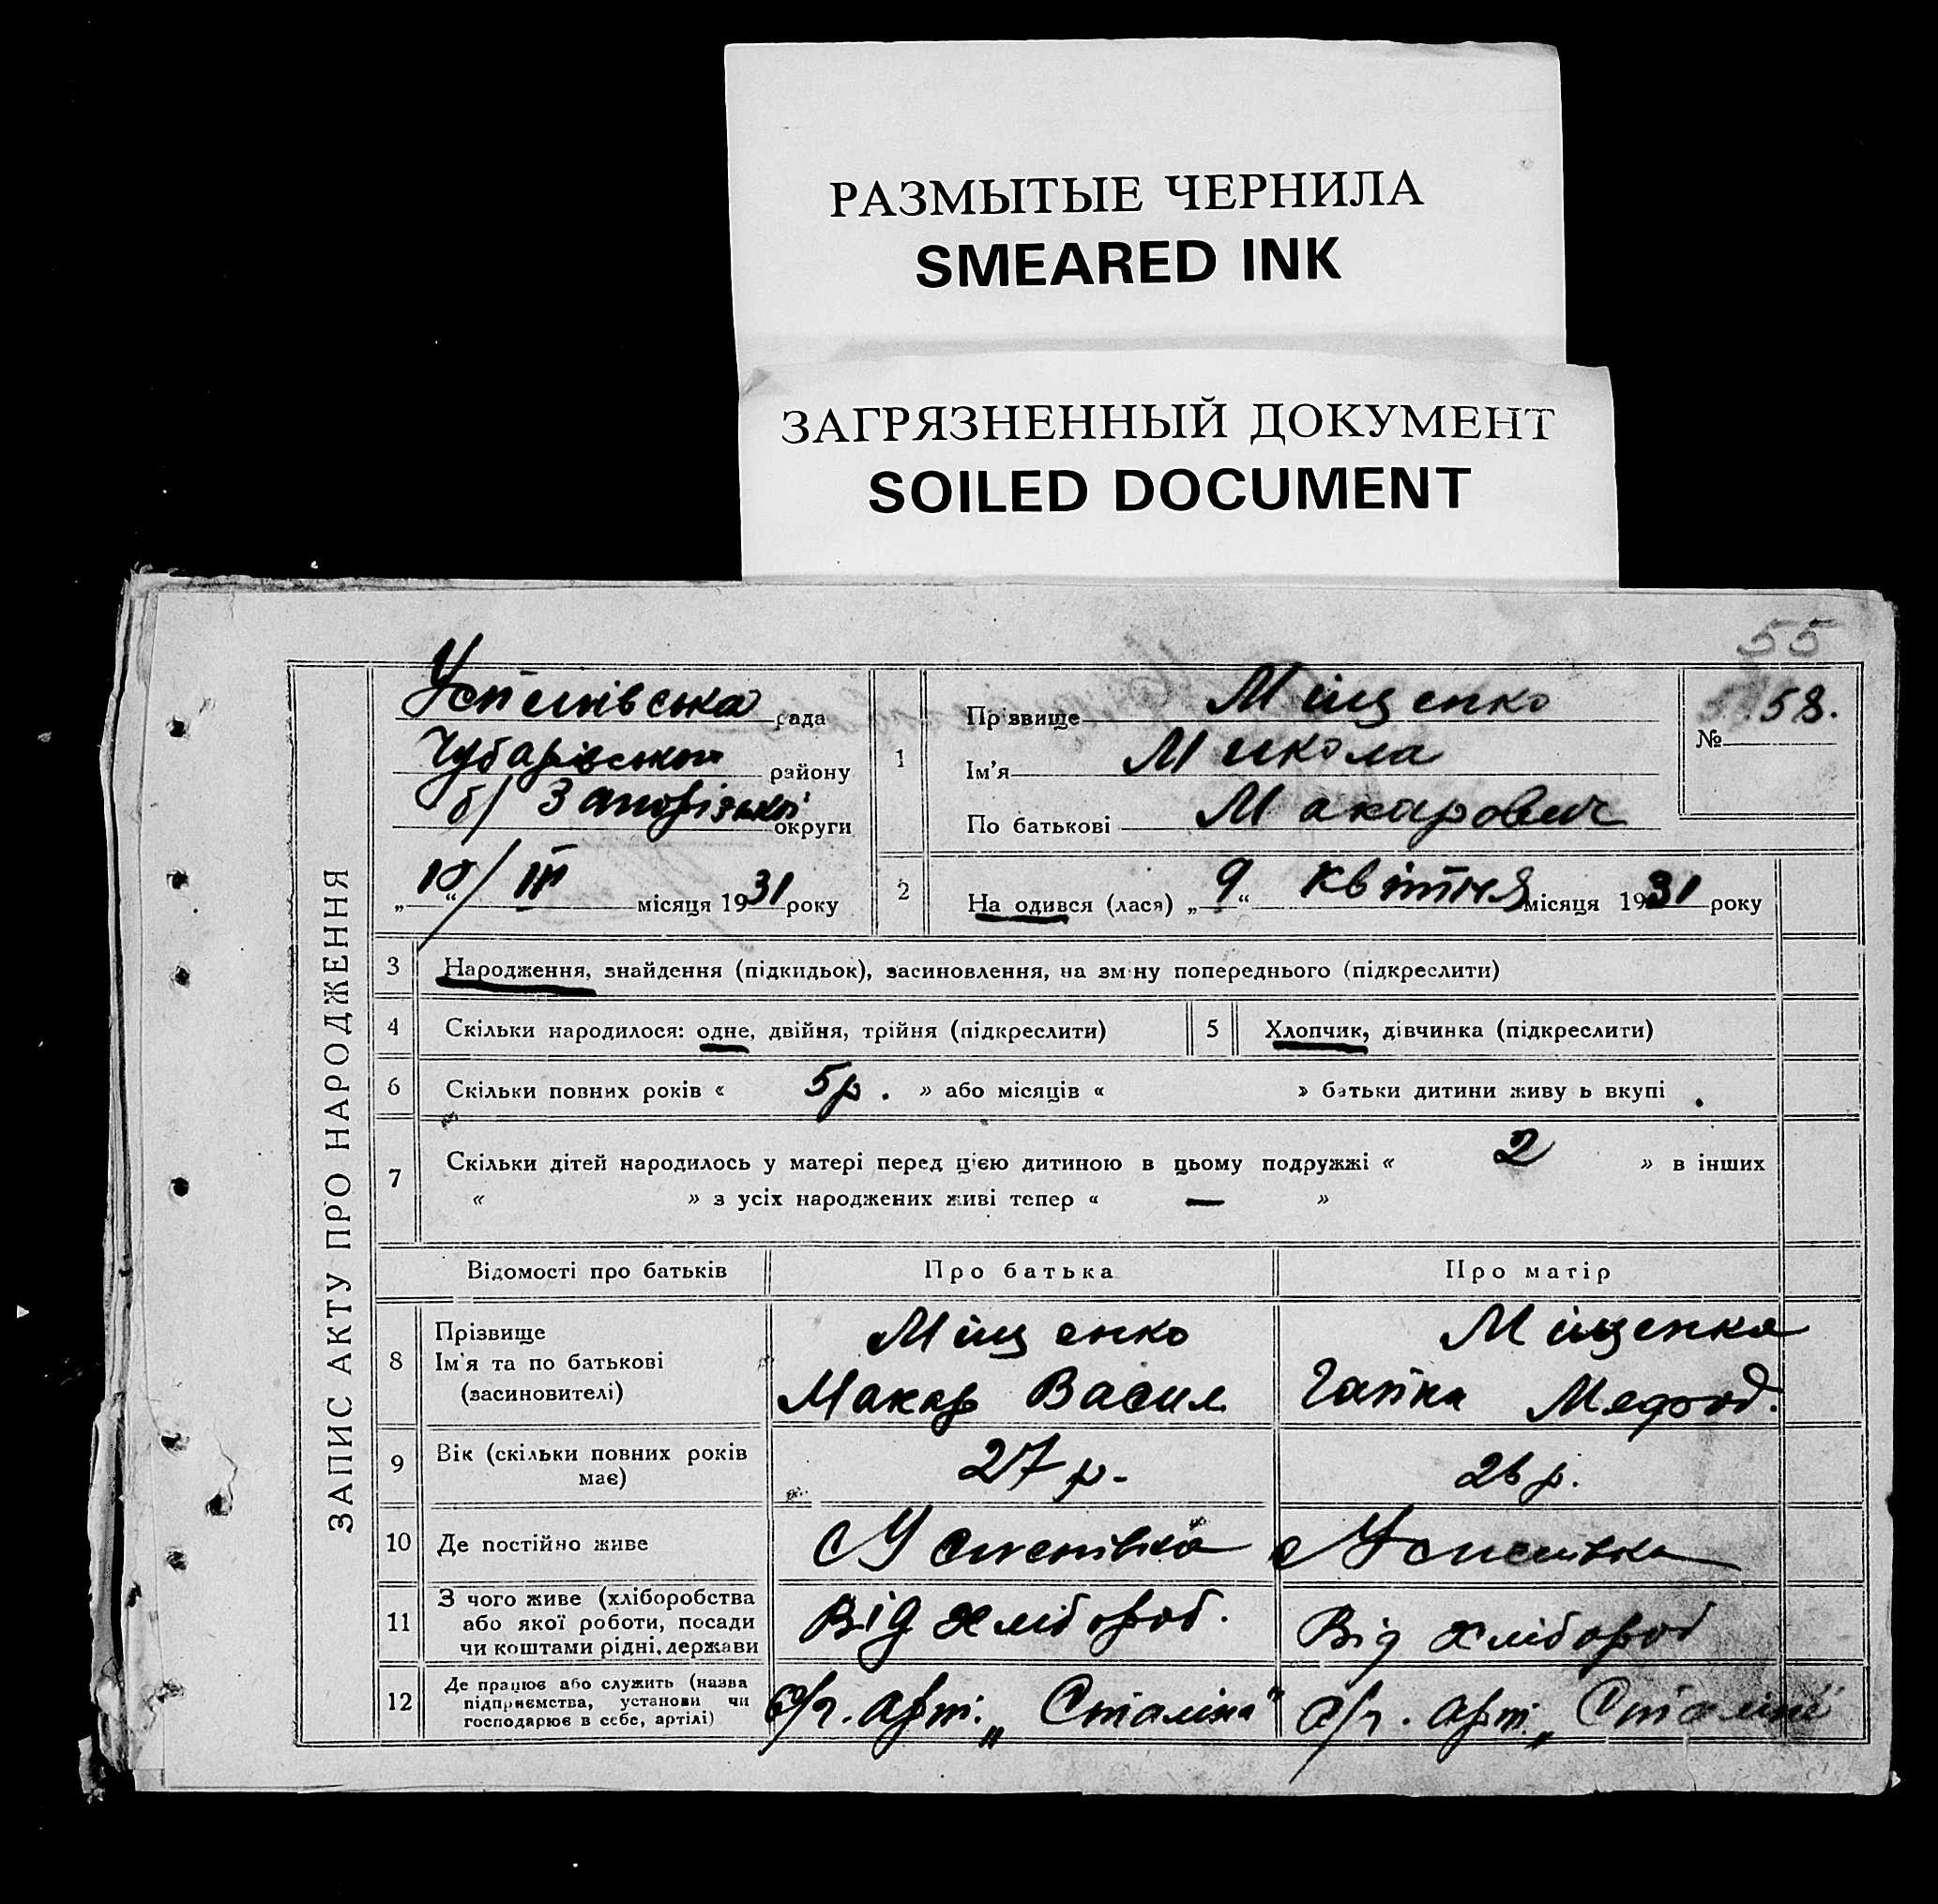 РАЗМЫТЫЕ ЧЕРНИЛА
SMEARED INK
ЗАГРЯЗНЕННЫЙ ДОКУМЕНТ
SOILED DOCUMENT
55
ЗАПИС АКТУ ПРО НАРОДЖЕННЯ
Успенівська рада
Чубарівського району
б/ Запорізької округи
„10“/ III місяця 1931 року
1 Прізвище Міщенко
Ім'я Микола
По батькові Макарович
№ 58.
2 На одився (лася) „9“ квітня місяця 1931 року
3 Народження, знайдення (підкидьок), засиновлення, на зміну попереднього (підкреслити)
4 Скільки народилося: одне, двійня, трійня (підкреслити)
5 Хлопчик, дівчинка (підкреслити)
6 Скільки повних років « 5р. » або місяців « » батьки дитини живу ь вкупі
7 Скільки дітей народилось у матері перед цією дитиною в цьому подружжі « 2 » в інших
« » з усіх народжених живі тепер « — »
Відомості про батьків Про батька Про матір
8 Прізвище
Ім'я та по батькові
(засиновителі)
Міщенко
Макар Васил
Міщенко
Гапка Мефод.
9 Вік (скільки повних років
має)
27 р.
26 р.
10 Де постійно живе
с Успенівка
с Успенівка
11 З чого живе (хліборобства
або якої роботи, посади
чи коштами рідні, держави
Від хлібороб.
Від хлібороб
12 Де працює або служить (назва
підприємства, установи чи
господарює в себе, артілі)
с/г. арт. „Сталіна"
с/г. арт. „Сталіна"